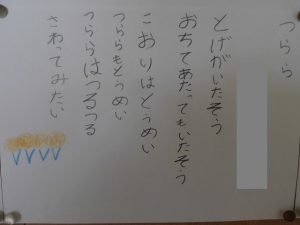 つらら
とげがいたそう
おちてあたってもいたそう
こおりはとうめい
つららもとうめい
つららはつるつる
さわってみたい